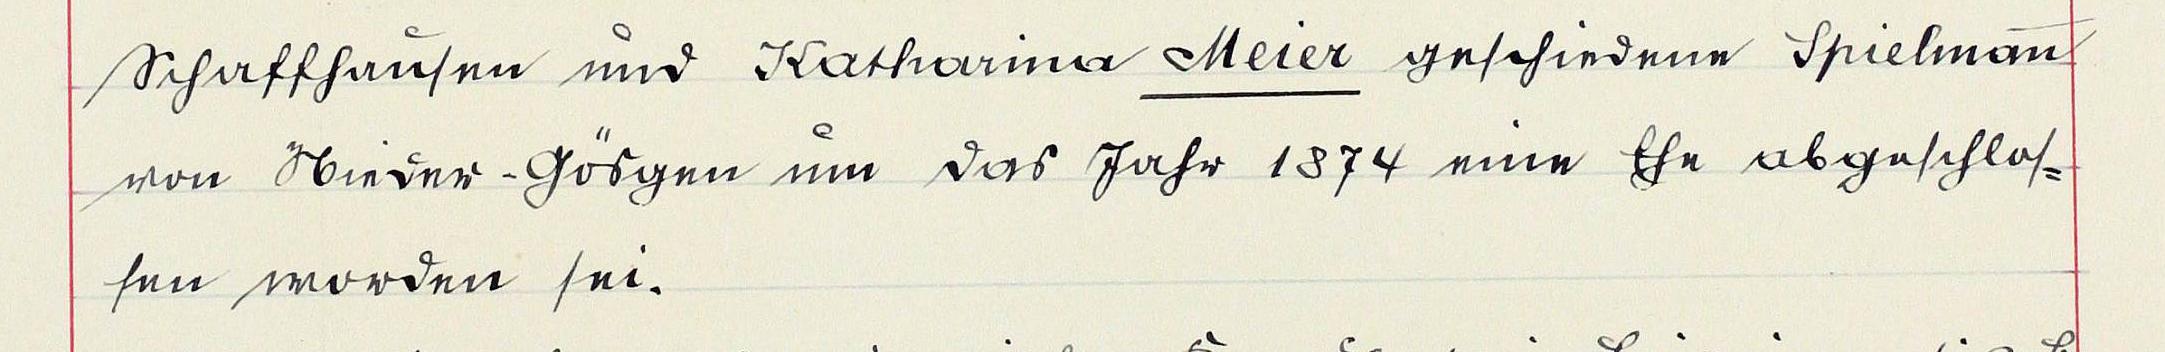 Schaffhausen und Katharina Meier geschiedene Spielman̄
von Nieder-Gösgen um das Jahr 1874 eine Ehe abgeschlos=
sen worden sei.